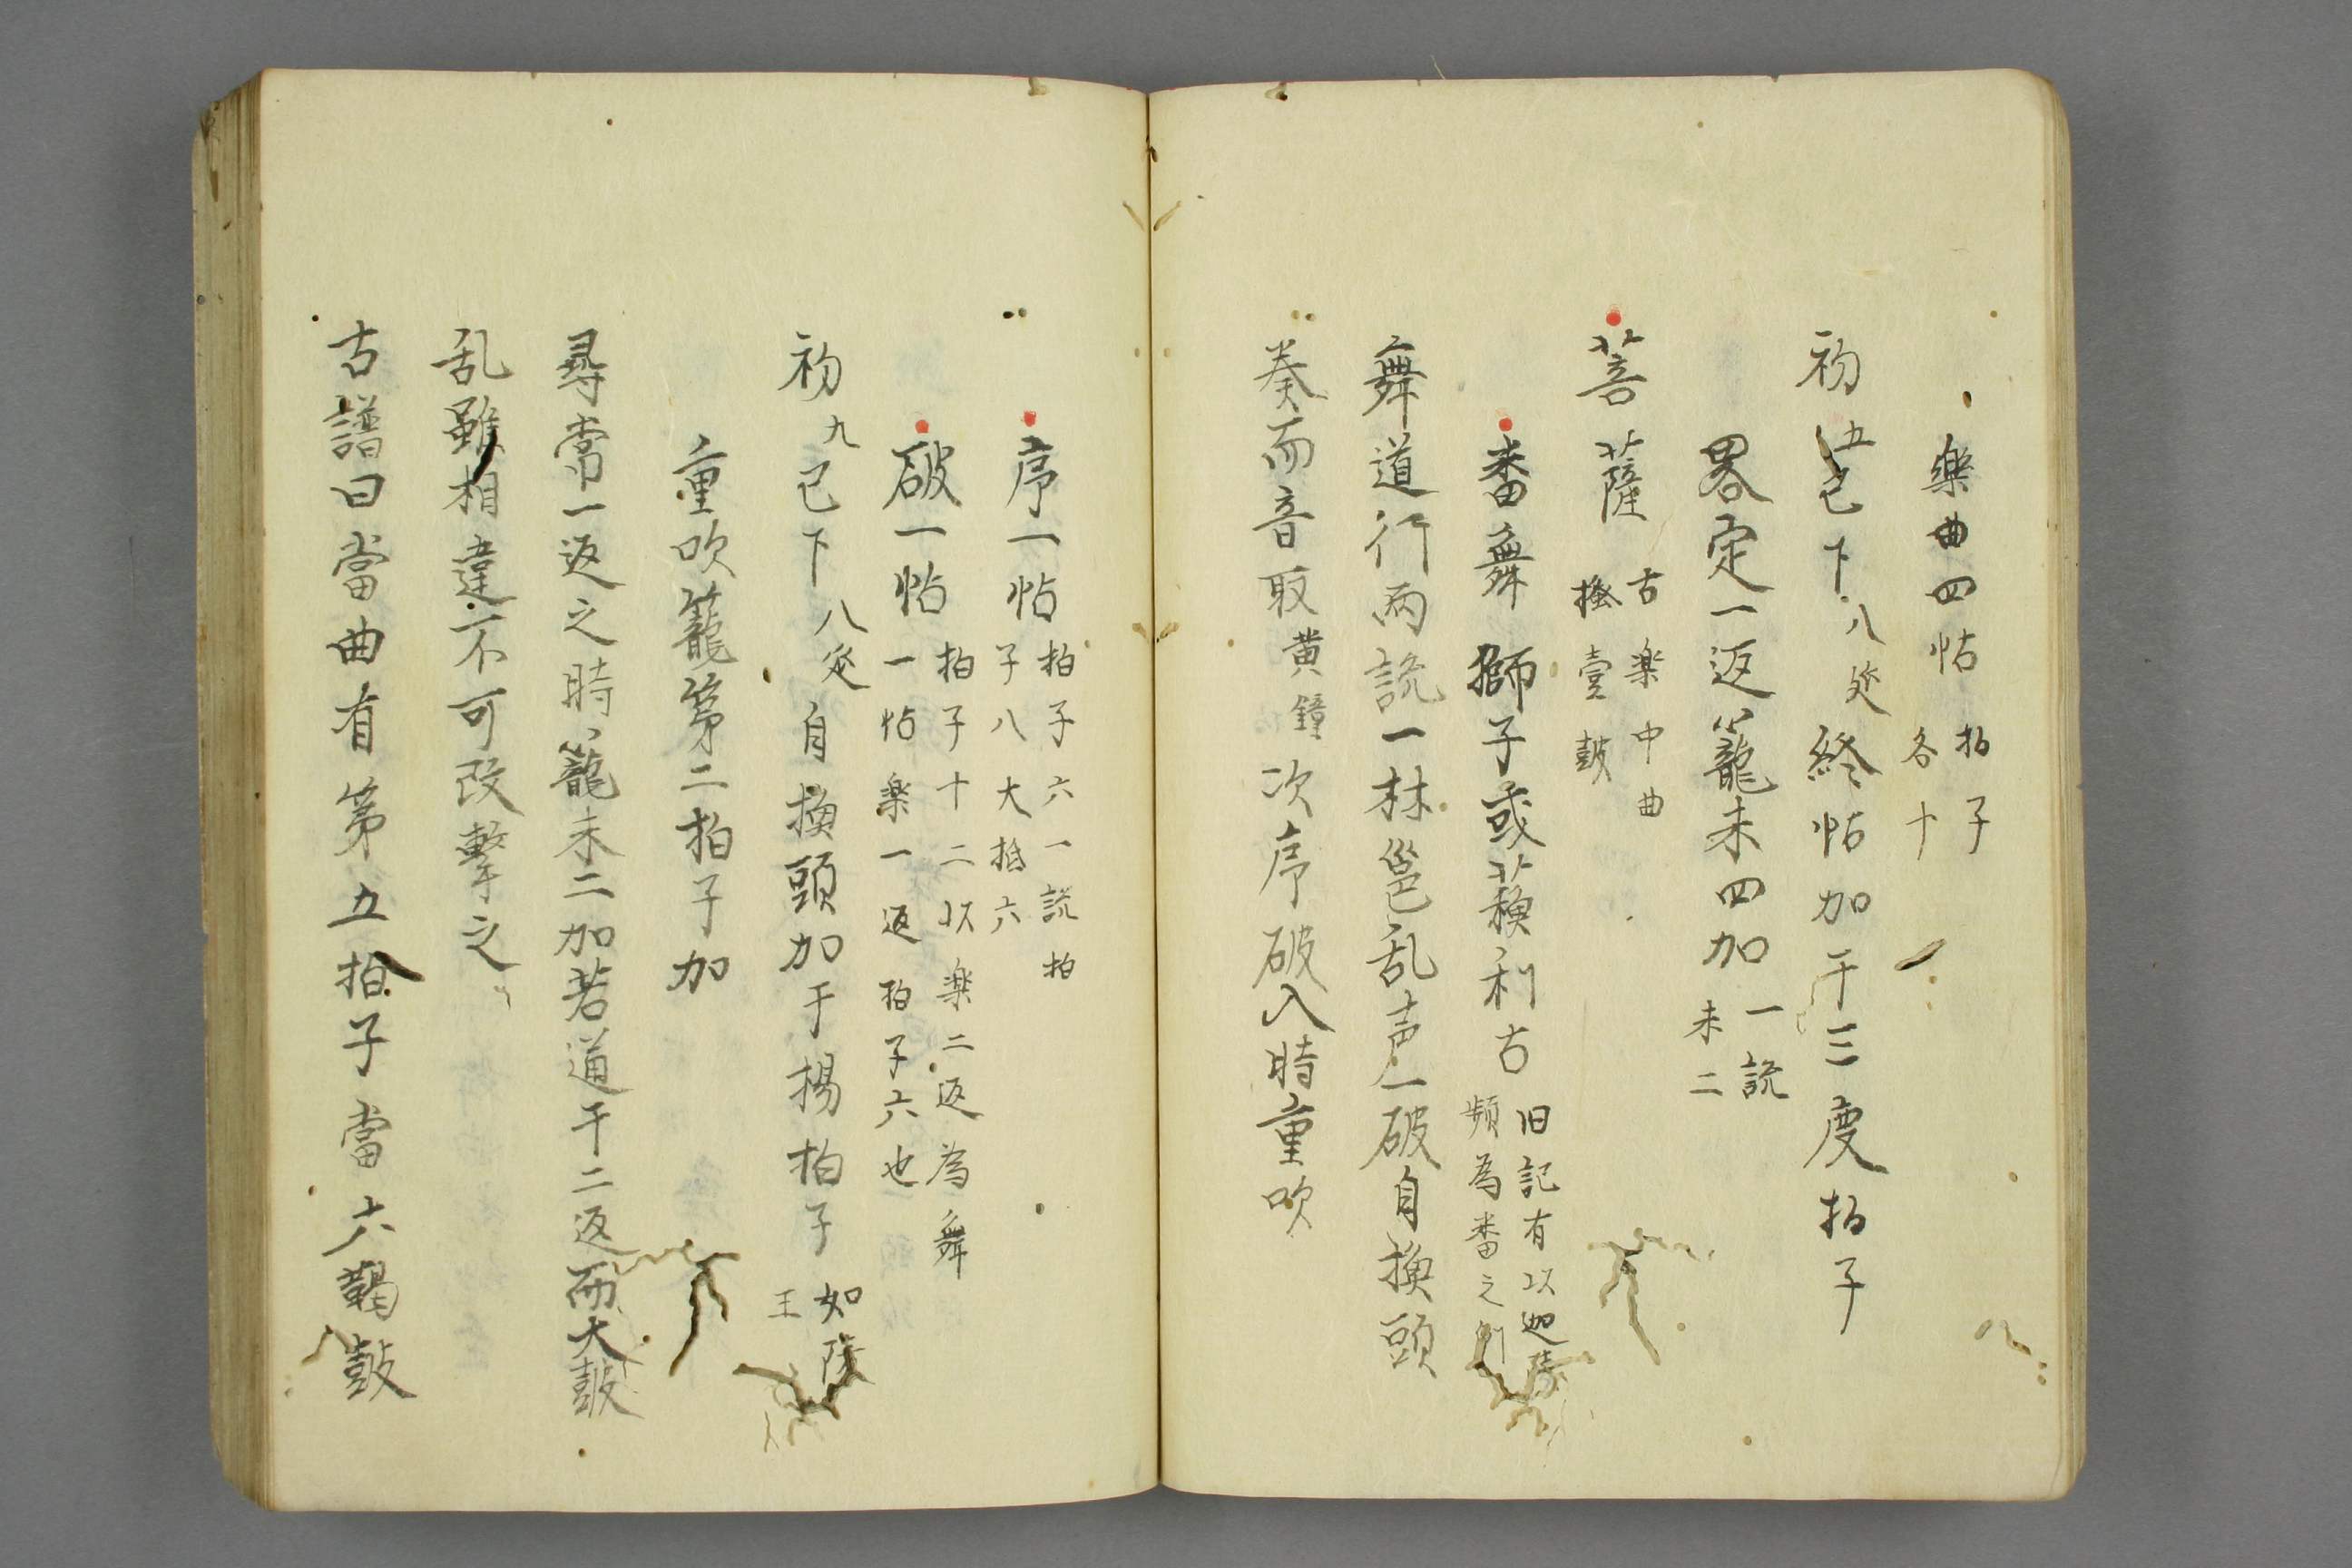 樂曲四帖 拍子各十
初五已下八处終帖加于三度拍子
畧定一返籠未四加 一説未二
菩薩 古楽中曲 搔壹鼓
番舞 獅子或蘓利古 旧記有以迦陵頻為番之
舞道行両説一林邕乱声一破自換頭
奏而音取黄鐘次序破入時重吹
序一帖 拍子六一説拍子八大抵六
破一帖 拍子十二以楽二返為舞一帖楽一返拍子六也
初九已下八处自換頭加于揚拍子 如陵王
重吹籠第二拍子加
尋常一返之時籠未二加若通于二返而大鼓
乱雖相違不可改撃之
古譜曰當曲有第五拍子當六鞨鼓